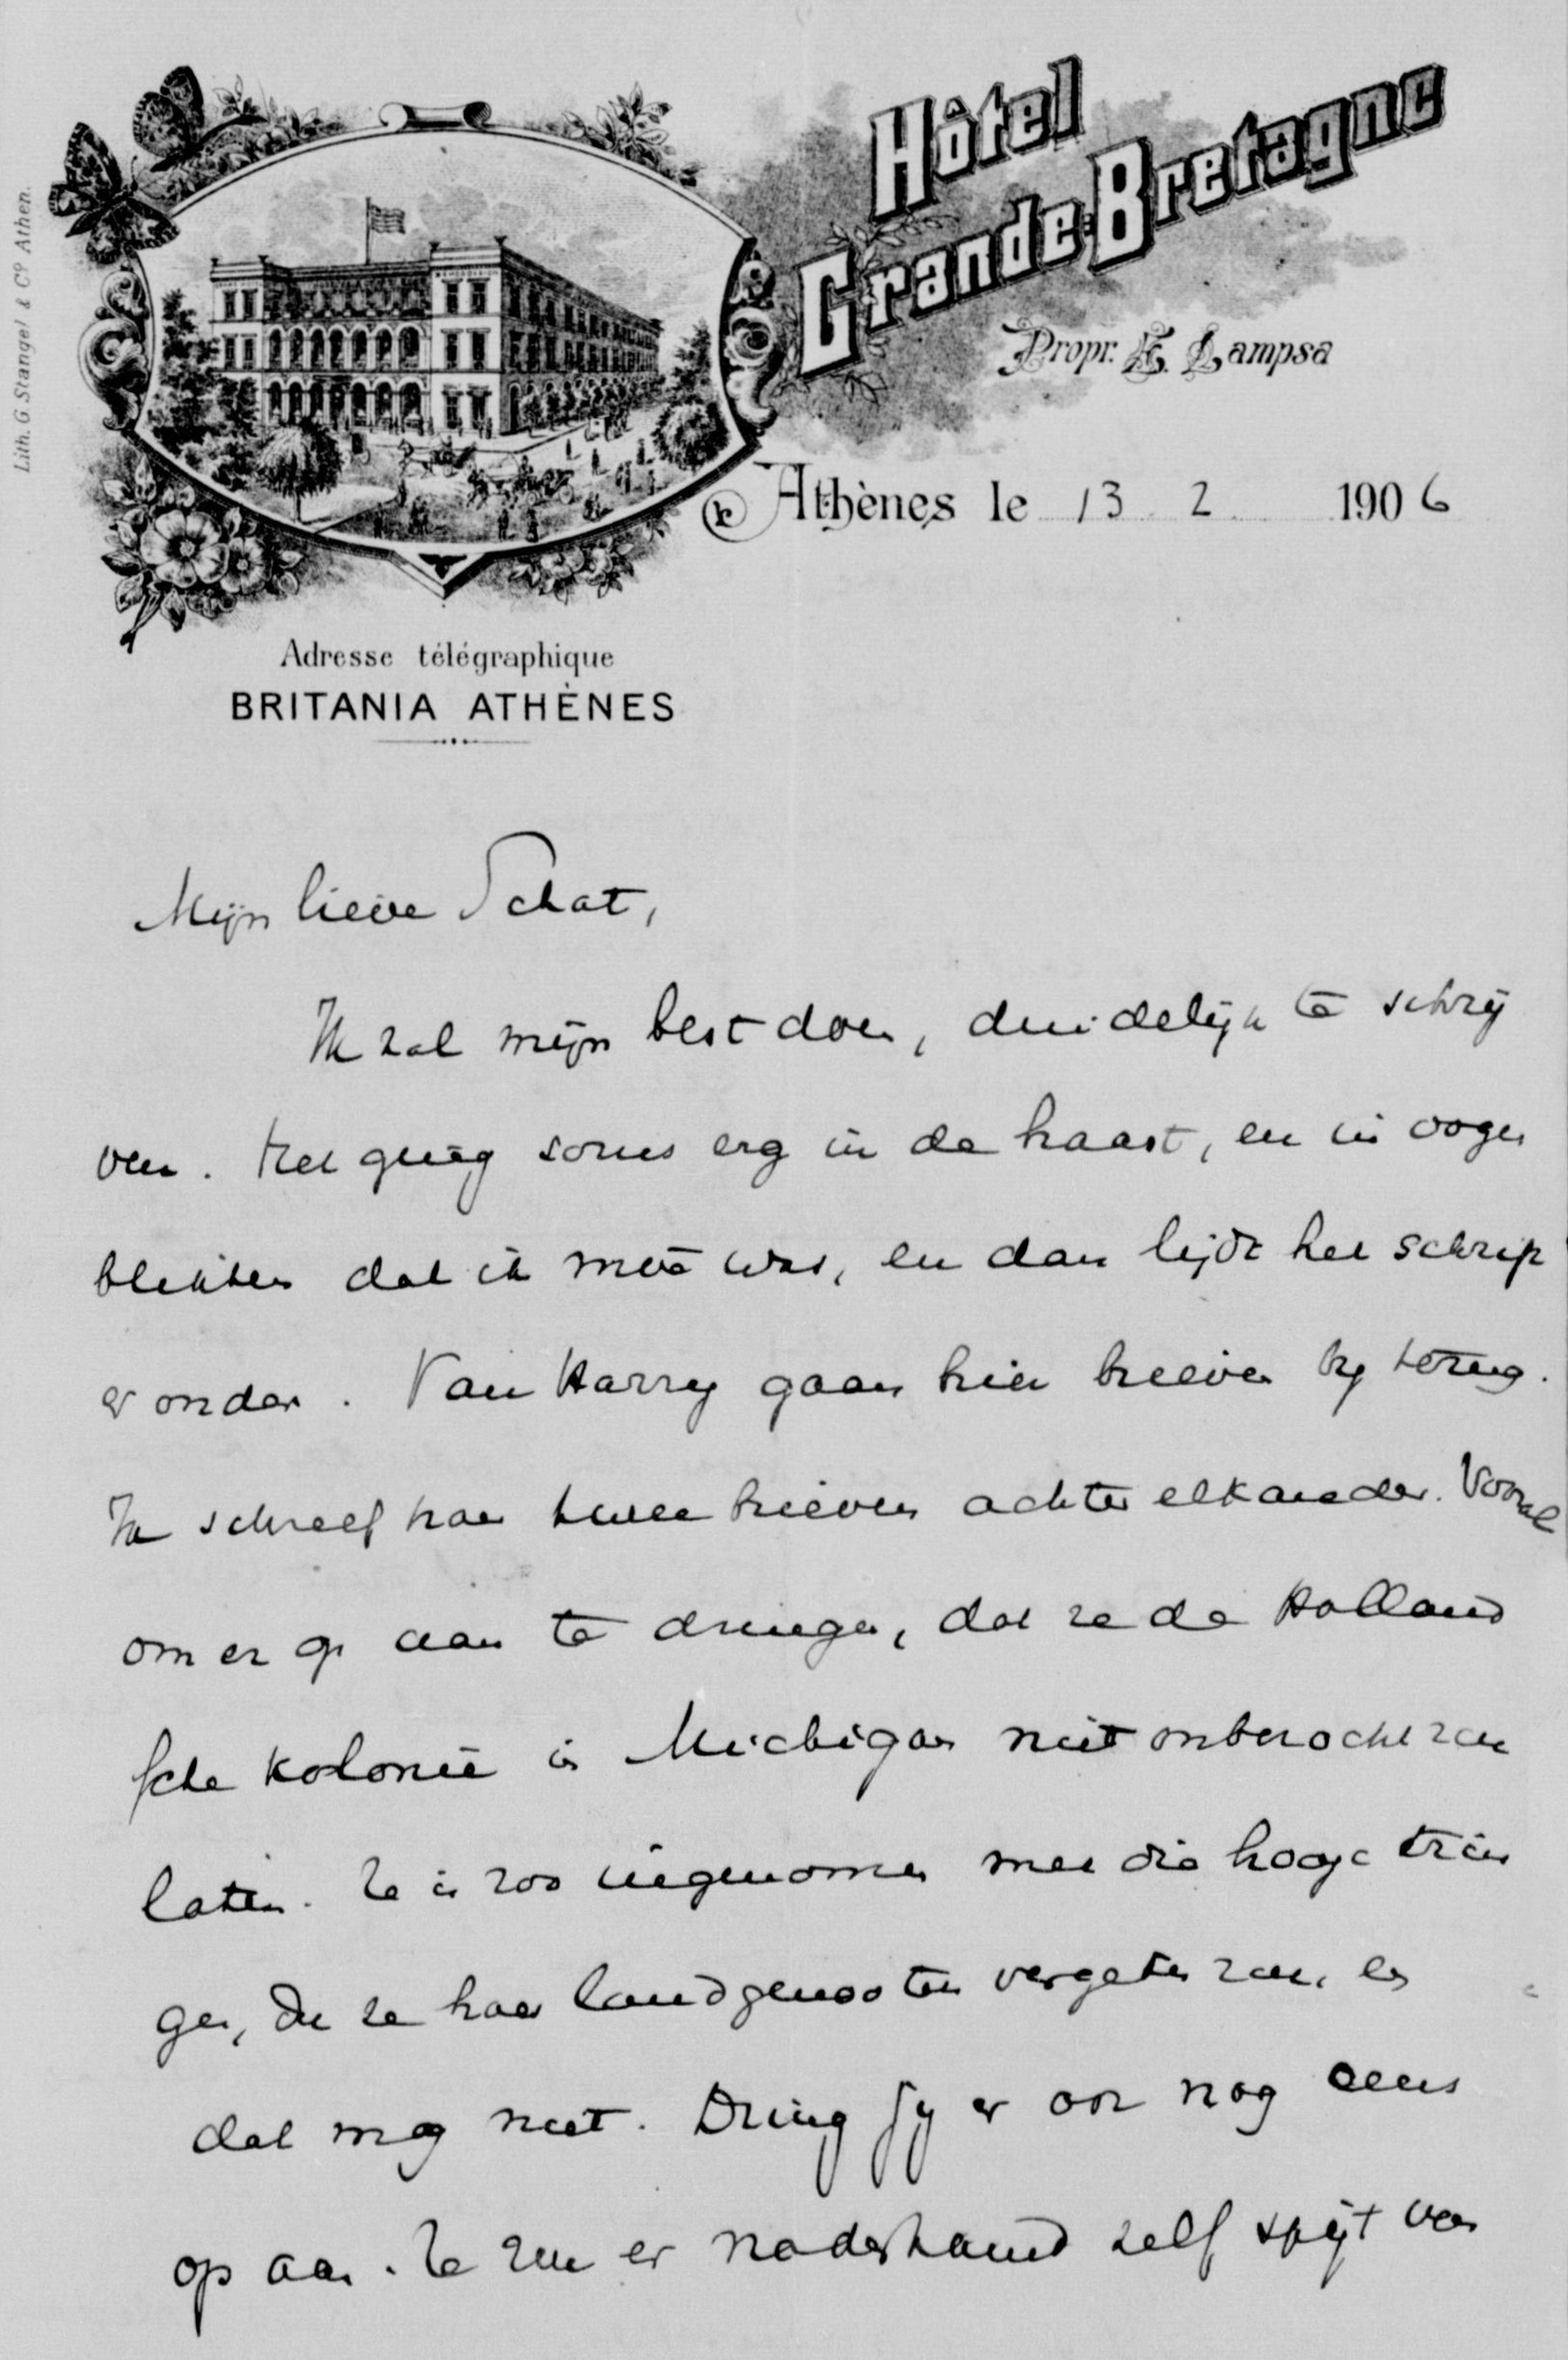 Lith. G. Stangel & Cº Athen.
Hôtel
Grande-Bretagne
Propr. E. Lampsa
Athènes le 13 2 1906
Adresse télégraphique
BRITANIA ATHÈNES
Mijn lieve Schat,
Ik zal mijn best doen, duidelijk te schrij
ven. Het ging soms erg in de haast, en in oogen
blikken dat ik moe was, en dan lijdt het schrift
er onder. Van Harry gaan hier brieven bij terug.
Ik schreef haar twee brieven achter elkander. Vooral
om er op aan te dringen, dat ze de Holland
sche kolonie in Michigan niet onbezocht zou
laten. Ze is zoo ingenomen met die hooge krin
gen, die ze haar landgenooten vergeten zou, en
dat mag niet. Dring jij er ook nog eens
op aan. Ze zou er naderhand zelf spijt van